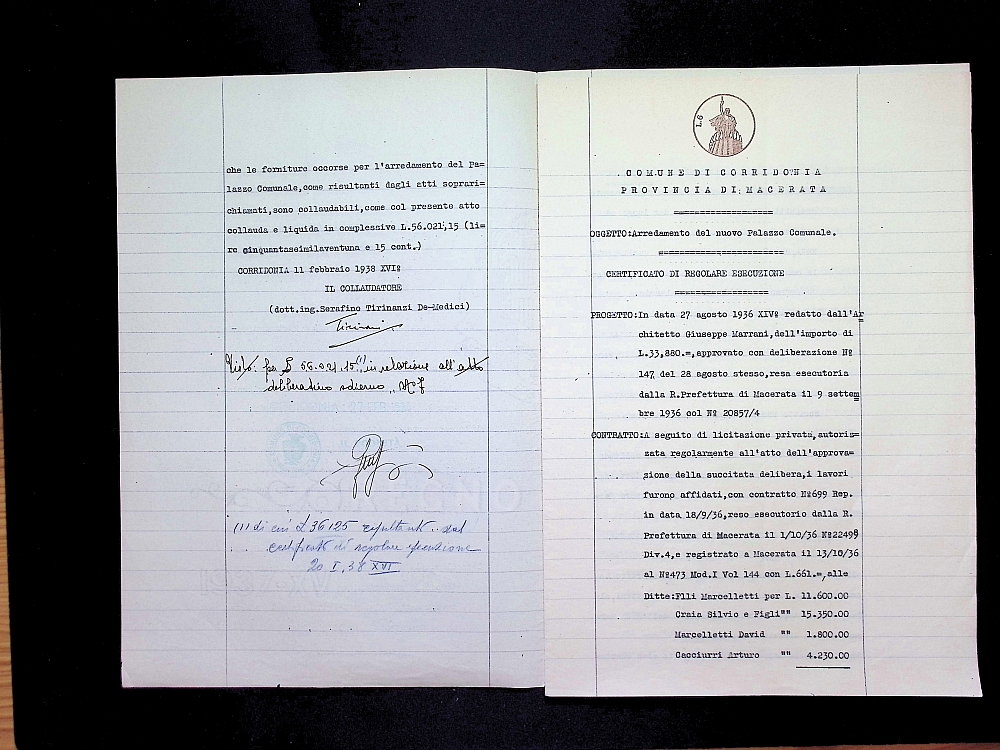 che le forniture occorse per l'arredamento del Pa=
lazzo Comunale,come risultanti dagli atti soprari=
chiamati,sono collaudabili,come col presente atto
collauda e liquida in complessive L.56.021,15 (li=
re cinquantaseimilaventuna e 15 cent.)
CORRIDONIA 11 febbraio 1938 XVIº
IL COLLAUDATORE
(dott.ing.Serafino Tirinanzi De-Medici)
Tirinanzi
Visto: per £ 56.021.15 (1) in relazione all'atto
deliberativo odierno, Nº 7
(1) di cui £ 36125 risultanti dal
certificato di regolare esecuzione
20 I, 38 XVI
L.6
COMUNE DI CORRIDONIA
PROVINCIA DI MACERATA
===================
OGGETTO:Arredamento del nuovo Palazzo Comunale.
========================
CERTIFICATO DI REGOLARE ESECUZIONE
==================
PROGETTO:In data 27 agosto 1936 XIVº redatto dall'Ar
chitetto Giuseppe Marrani,dell'importo di
L.33,880.=,approvato con deliberazione Nº
147 del 28 agosto stesso,resa esecutoria
dalla R.Prefettura di Macerata il 9 settem
bre 1936 col Nº 20857/4
CONTRATTO:A seguito di licitazione privata,autoriz=
zata regolarmente all'atto dell'approva=
zione della succitata delibera,i lavori
furono affidati,con contratto Nº699 Rep.
in data 18/9/36,reso esecutorio dalla R.
Prefettura di Macerata il 1/10/36 Nº22499
Div.4,e registrato a Macerata il 13/10/36
al Nº473 Mod.I Vol 144 con L.661.=,alle
Ditte:Flli Marcelletti per L. 11.600.00
Craia Silvio e Figli"" 15.350.00
Marcelletti David "" 1.800.00
Cacciurri Arturo "" 4.230.00